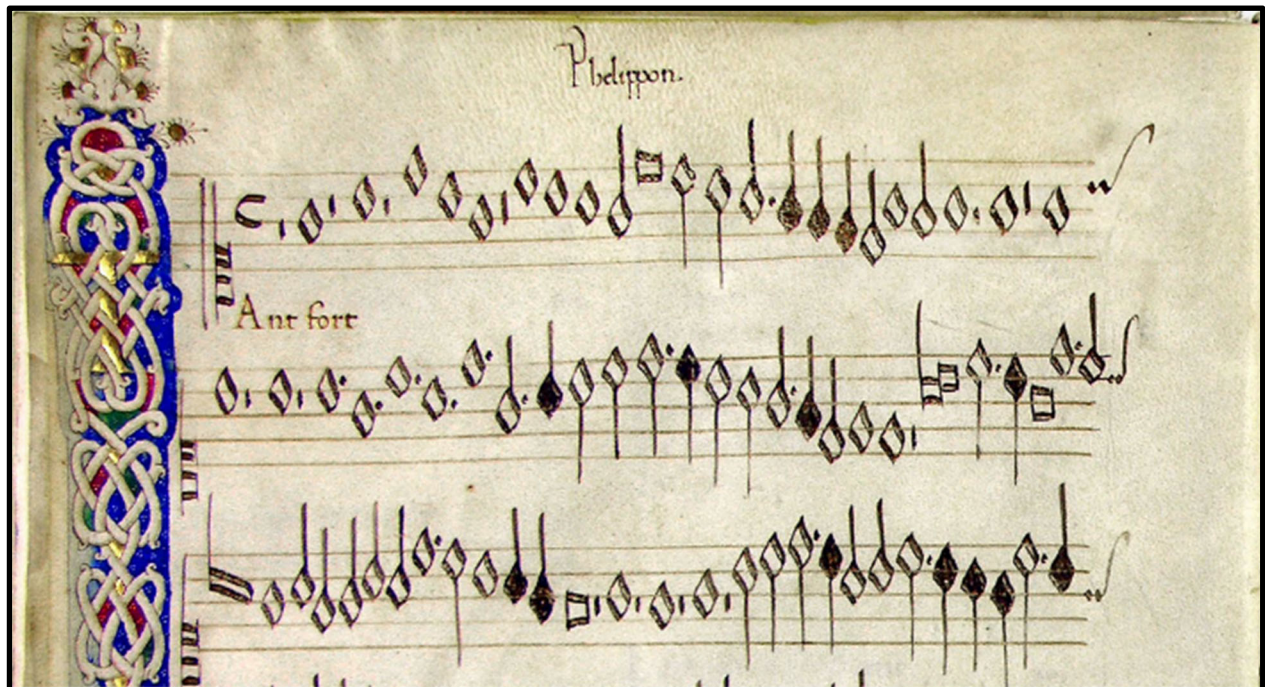 Phelippon.
Ant fort